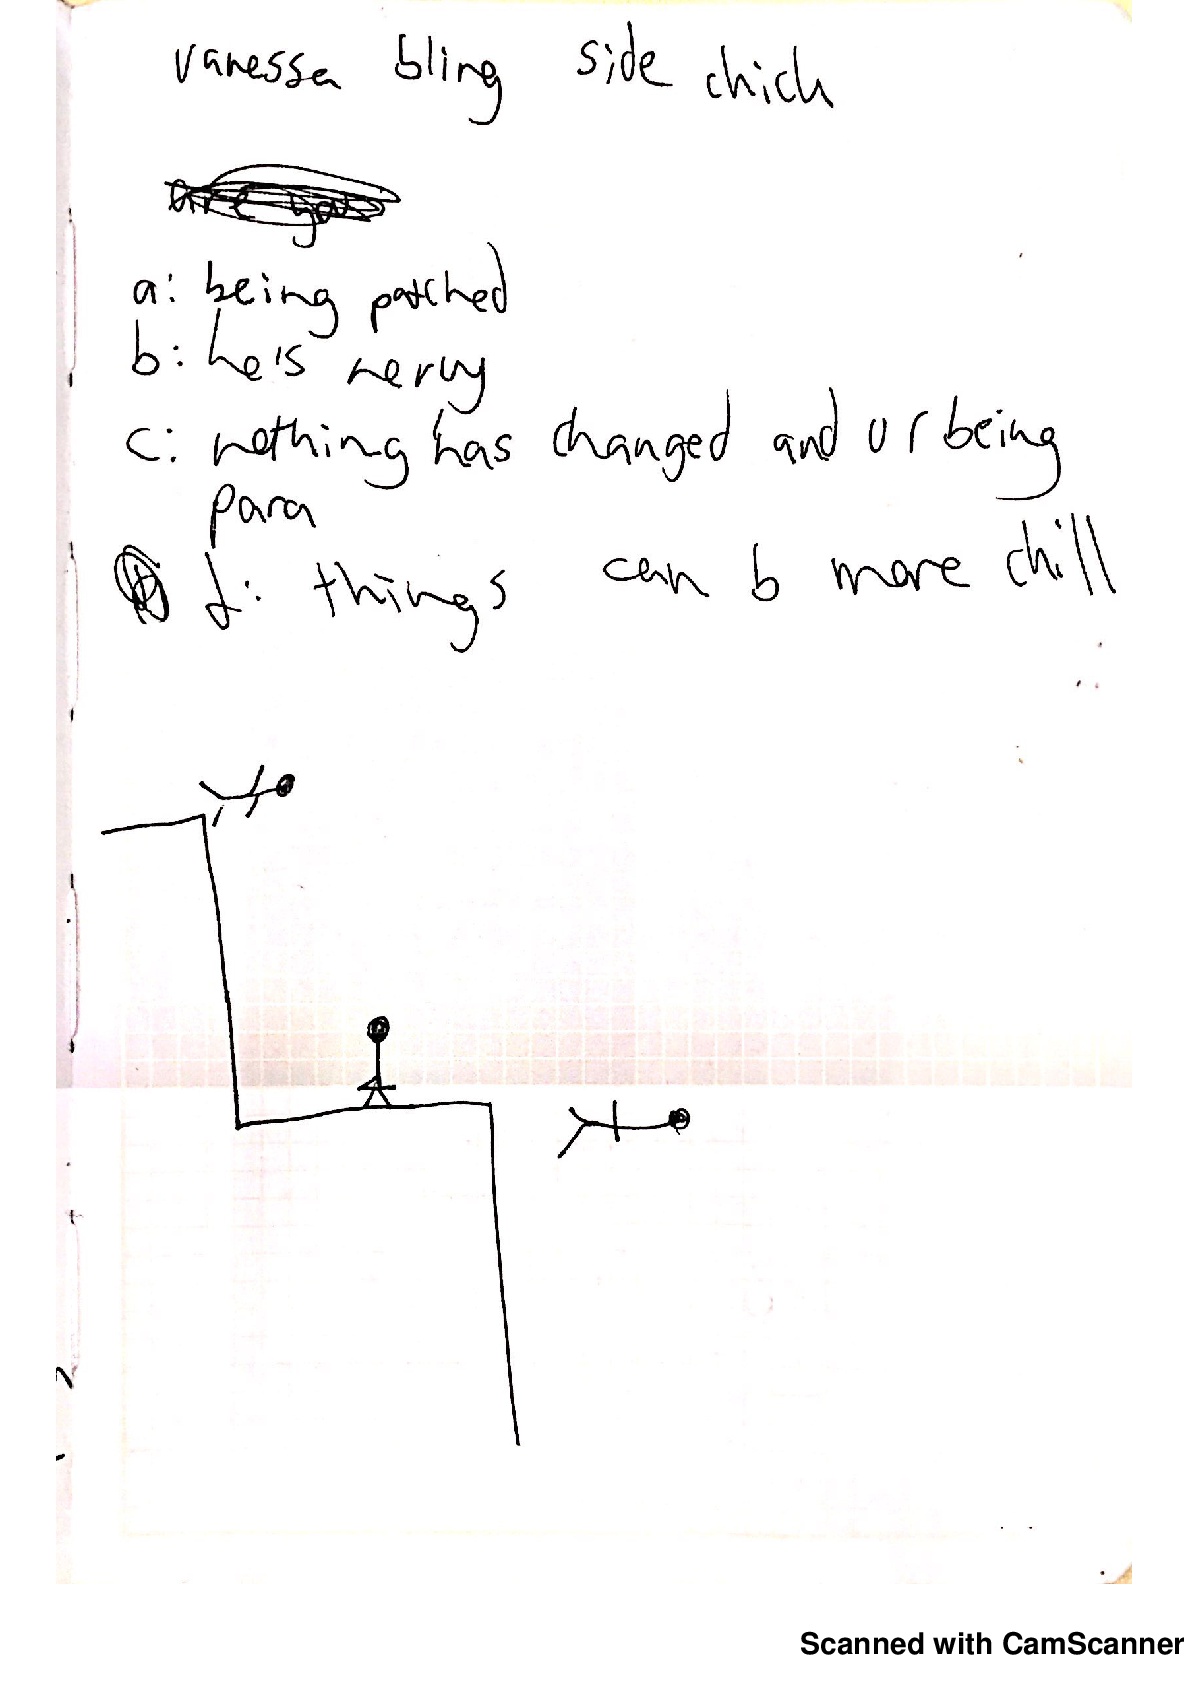 vanessa bling side chick
are you
a: being patched
b: he's nervy
c: nothing has changed and u r being
para
d: things can b more chill
Scanned with CamScanner